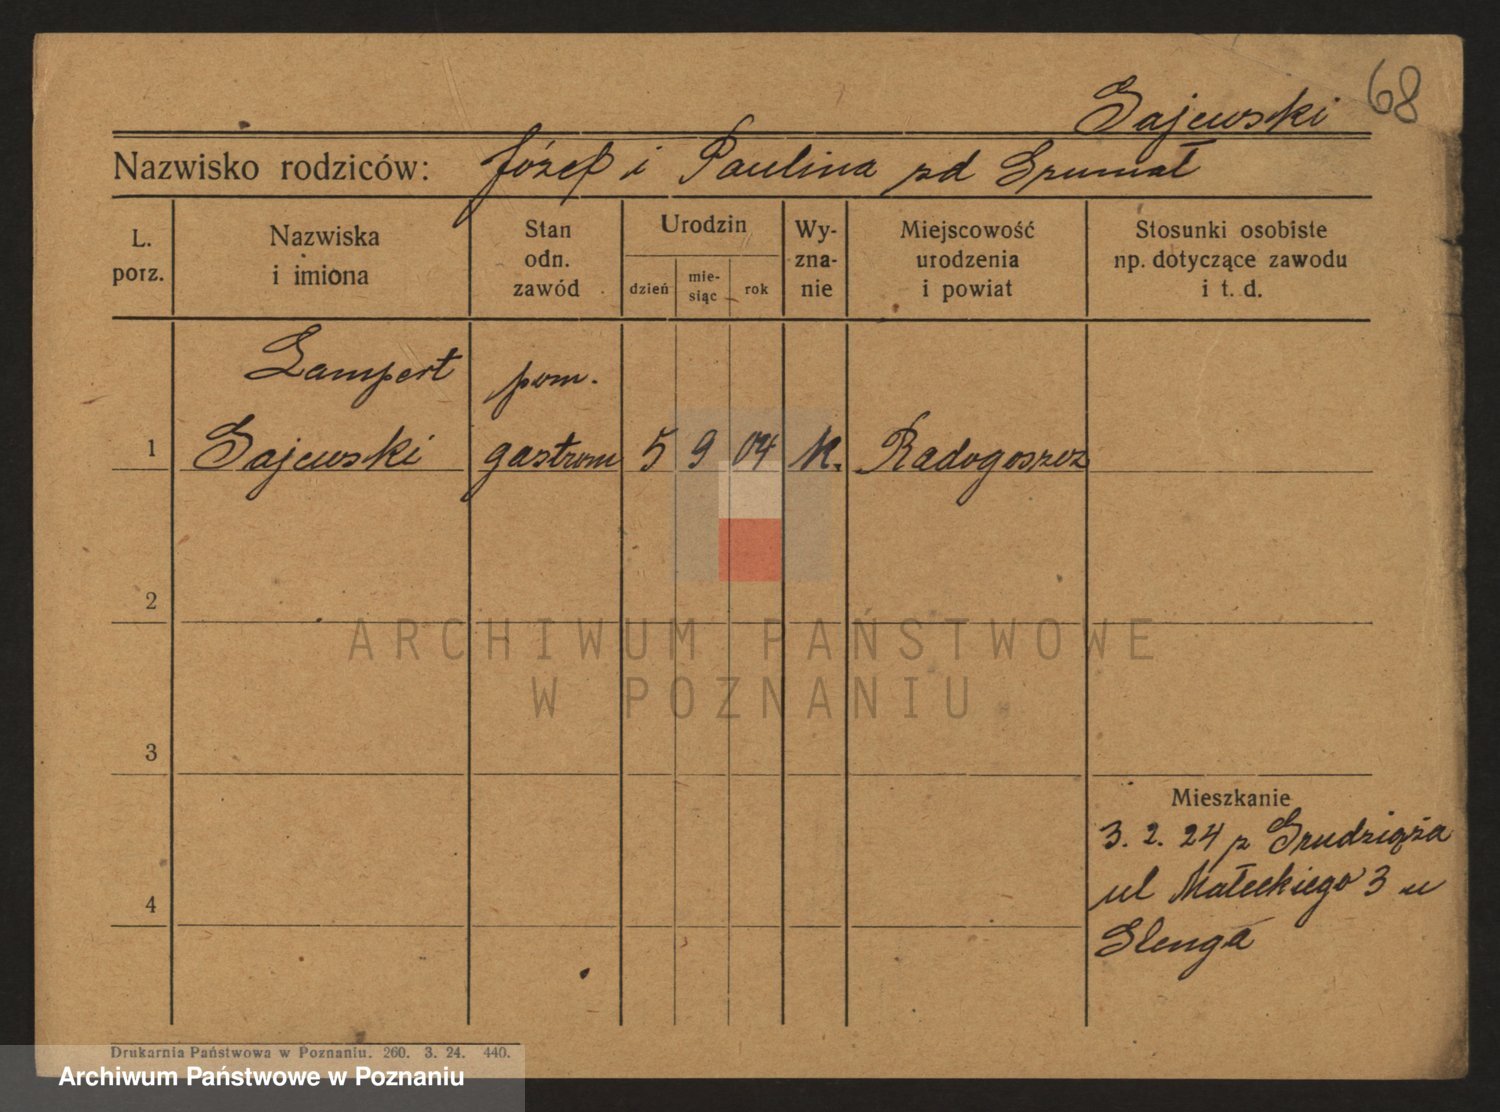 68
Gajewski
Nazwisko rodziców: Józef i Paulina zd Grumat
L. porz.
Nazwiska i imiona
Stan odn. zawód
Urodzin
dzień
mie-
siąc
rok
Wy-
zna-
nie
Miejscowość urodzenia i powiat
Stosunki osobiste np. dotyczące zawodu i t. d.
Lampert pom.
1 Gajewski gastrom 5 9 04 k. Radogoszcz
2
3
Mieszkanie
3. 2. 24 z Grudziąża
ul Małeckiego 3 u
4
Glenga
ARCHIWUM PAŃSTWOWE
W POZNANIU
Drukarnia Państwowa w Poznaniu. 260. 3. 24. 440.
Archiwum Państwowe w Poznaniu